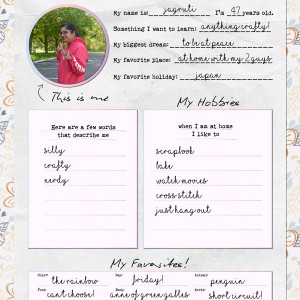 My name is: jagruti I'm 47 years old.
Something I want to learn: anything crafty!
My biggest dream: to be at peace
My favorite place: at home with my 2 guys
My favorite holiday: japan
This is me
My Hobbies
Here are a few words
that describe me
silly
crafty
nerdy
when I am at home
I like to
scrapbook
bake
watch movies
cross stitch
just hang out
My Favorites!
Color: the rainbow Day: friday! Animal: penguin
Food: can't choose! Book: anne of green gables Movie: short circuit!